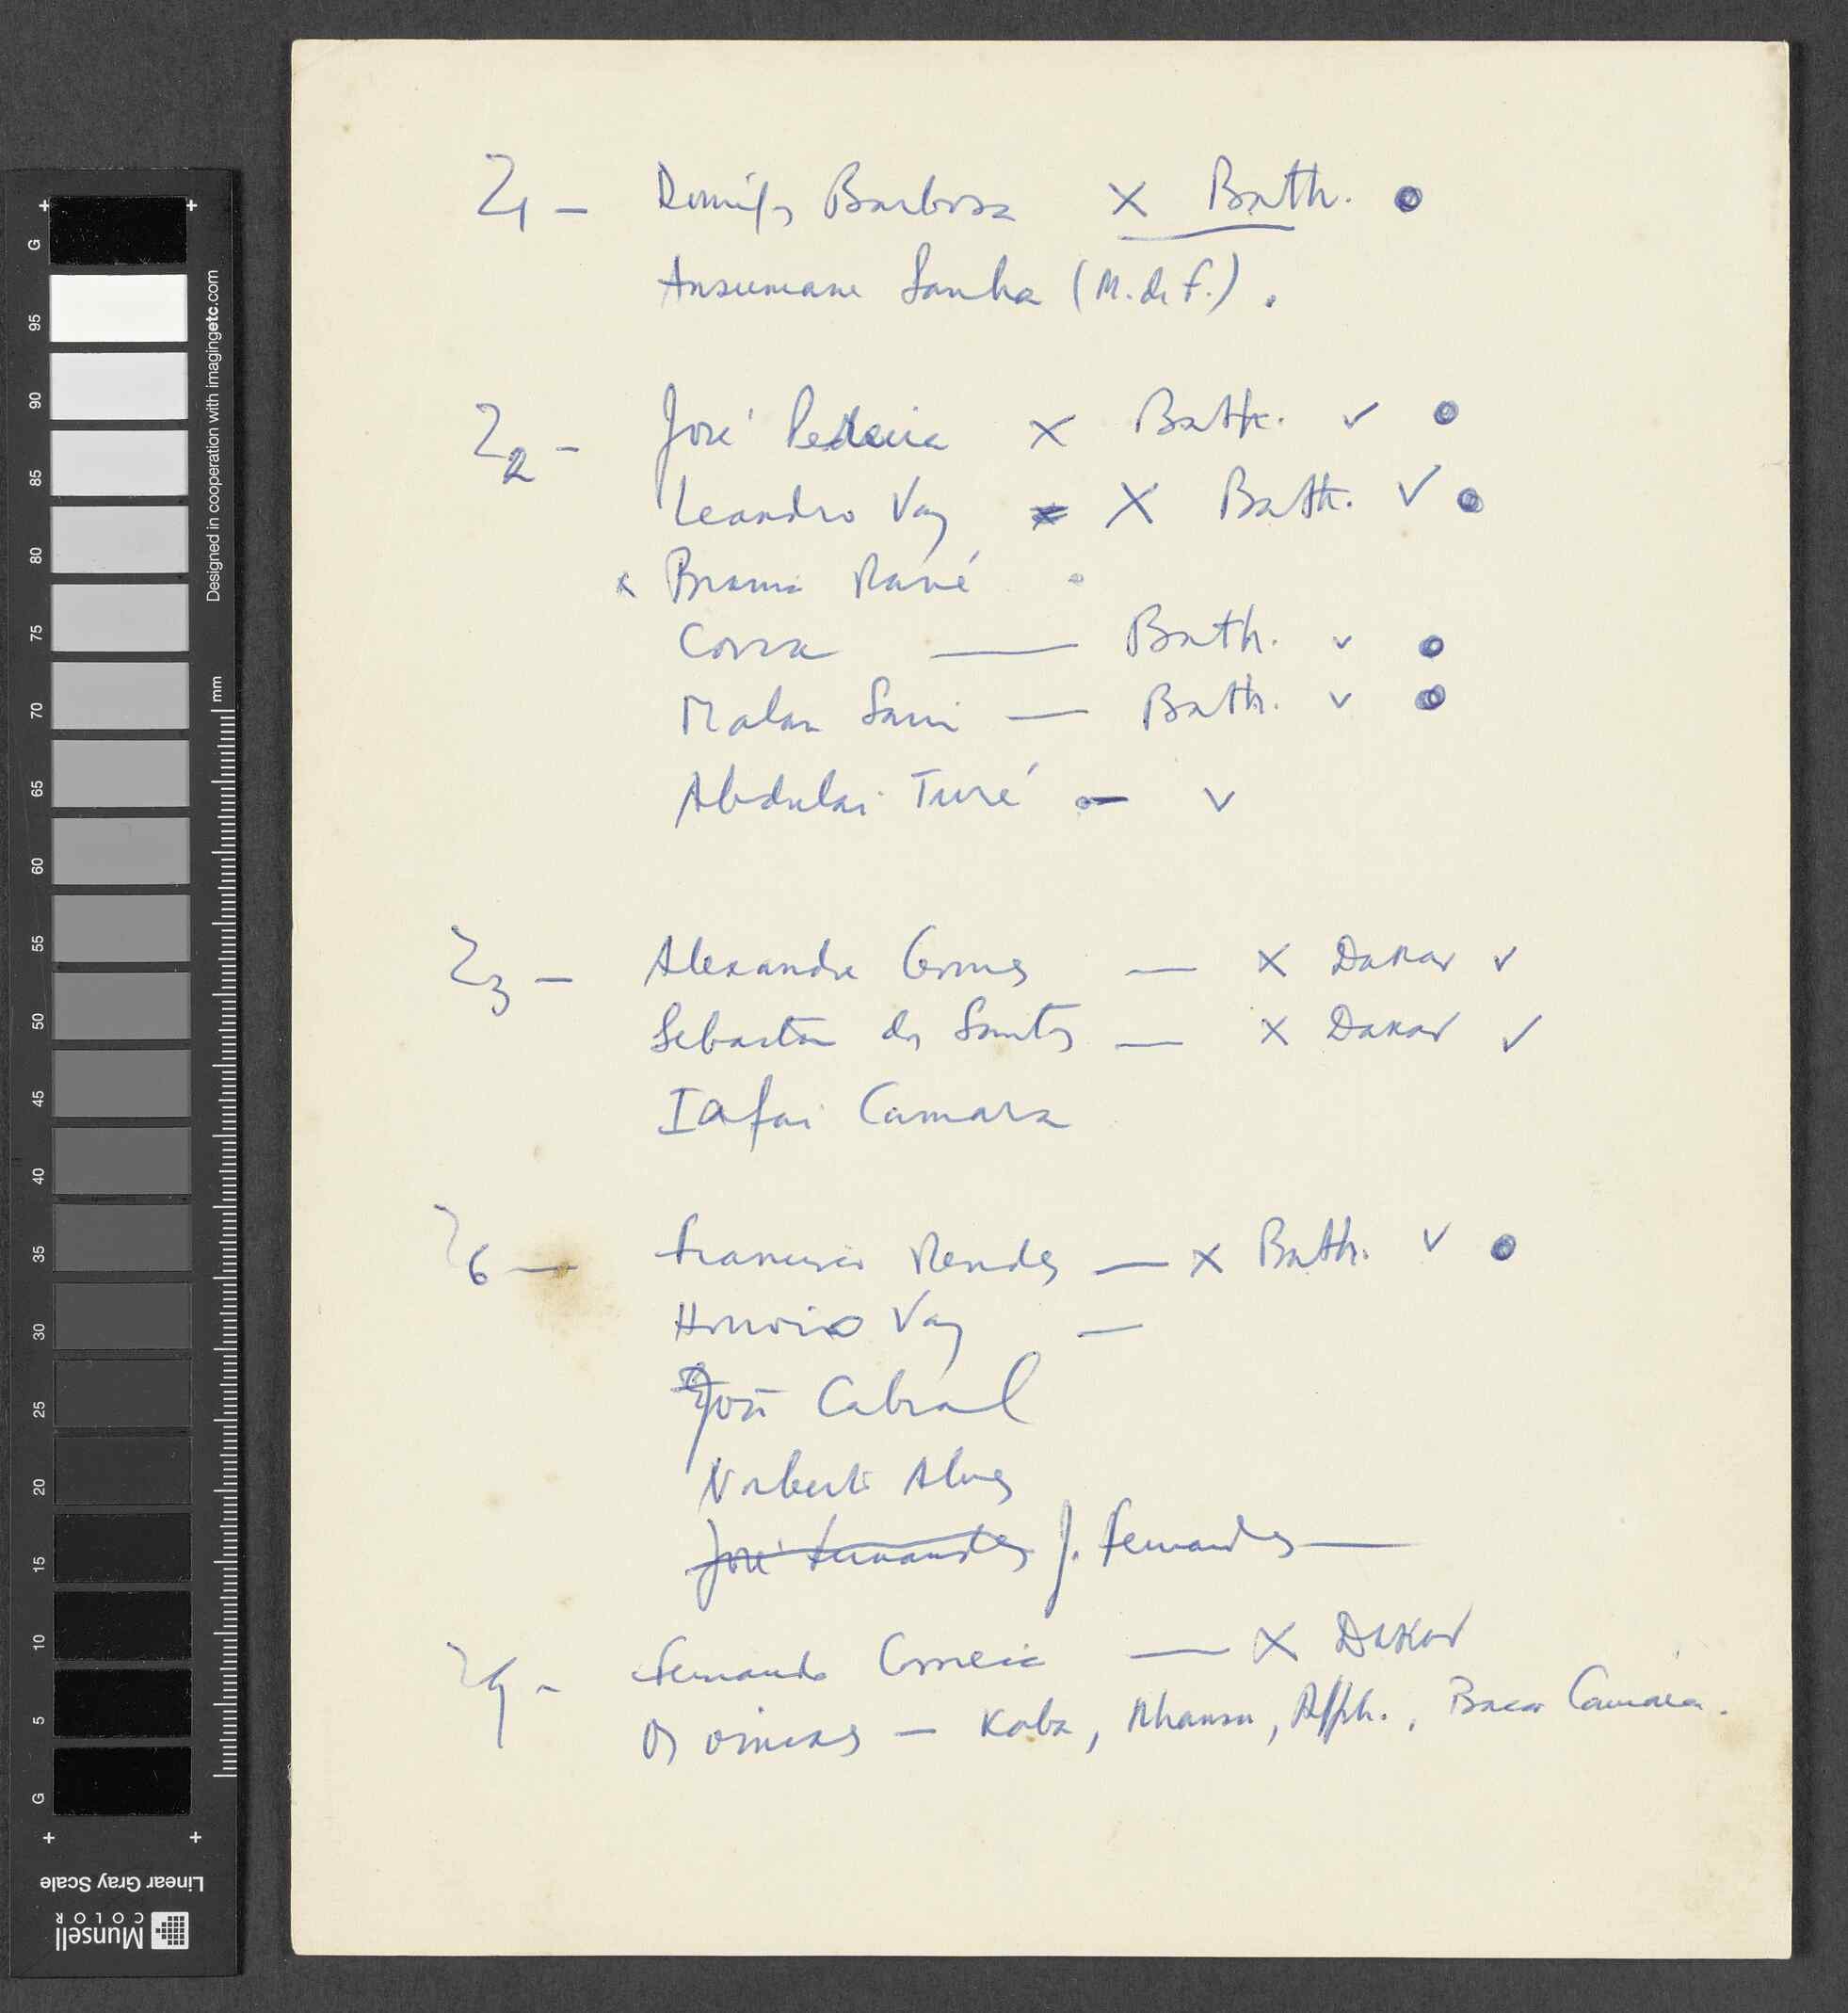 Z1 — Domingos Barbosa X Bath. ●
Ansumane Sanha (M. de F.) .
Z2 — José Pereira X Bath. ✓ ●
Leandro Vaz X Bath. ✓ ●
x Braima Mané
Corca — Bath. ✓ ●
Malan Sani — Bath. ✓ ●
Abdulai Turé — ✓
Z3 — Alexandre Gomes — X Dakar ✓
Sebastião dos Santos — X Dakar ✓
Iafai Camara
Z6 — Francisco Mendes — X Bath. ✓ ●
Honório Vaz —
José Cabral
Norberto Alves
José Fernandes J. Fernandes —
Z9 — Fernando Correia — X Dakar
Os — Koba, Nhansu, , Bacar Camára.
G
95
90
85
80
75
70
65
60
55
50
45
40
35
30
25
20
15
10
5
G
mm
Designed in cooperation with imagingetc.com
Linear Gray Scale
Munsell
COLOR